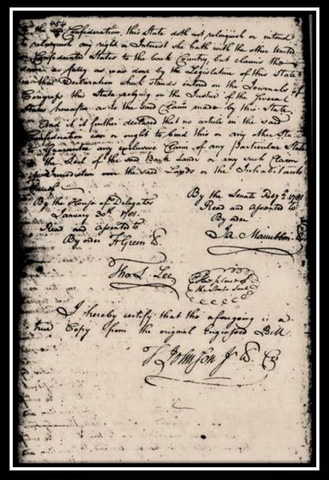 454
the Confederation, this State doth not relinquish or intend
to relinquish any right or Interest she hath with the other United
or Confederated States to the back Country, but claims the
same as fully as was done by the Legislature of this State
in their Declaration which stands entered on the Journals of
Congress this State relying on the Justice of the several
States hereafter as to the said Claim made by this State
And it is further declared that no article in the said
Confederation can or ought to bind this or any other State
to Guarantee any exclusive Claim of any particular State
to the Soil of the said Back Lands or any such Claim
of Jurisdiction over the said Lands or the Inhabitants
thereof
By the House of Delegates
January 30th 1781.
Read and assented to
By order F Green
By the Senate Feby 2d 1781
Read and assented to
By order
Ja. Maccubbin
Tho S. Lee
The place of
the State Seal
I hereby certify that the aforegoing is a
true Copy from the original Engrossed Bill.
T Johnson Jr